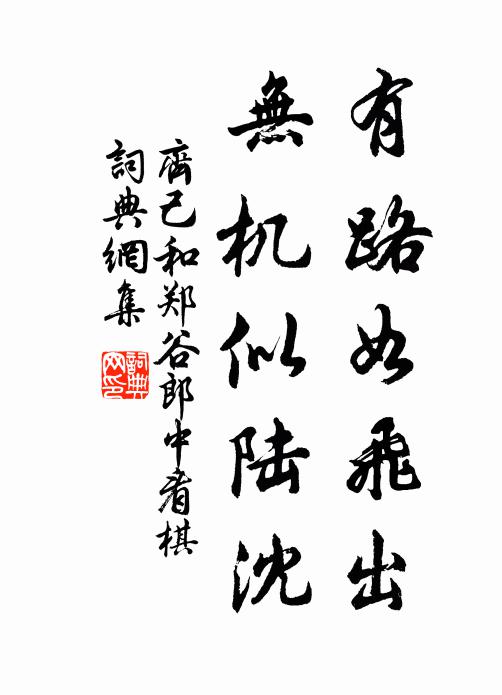 有路如飛出
無机似陆沈
齊己和郑谷郎中看棋
詞典網集
詞典网印